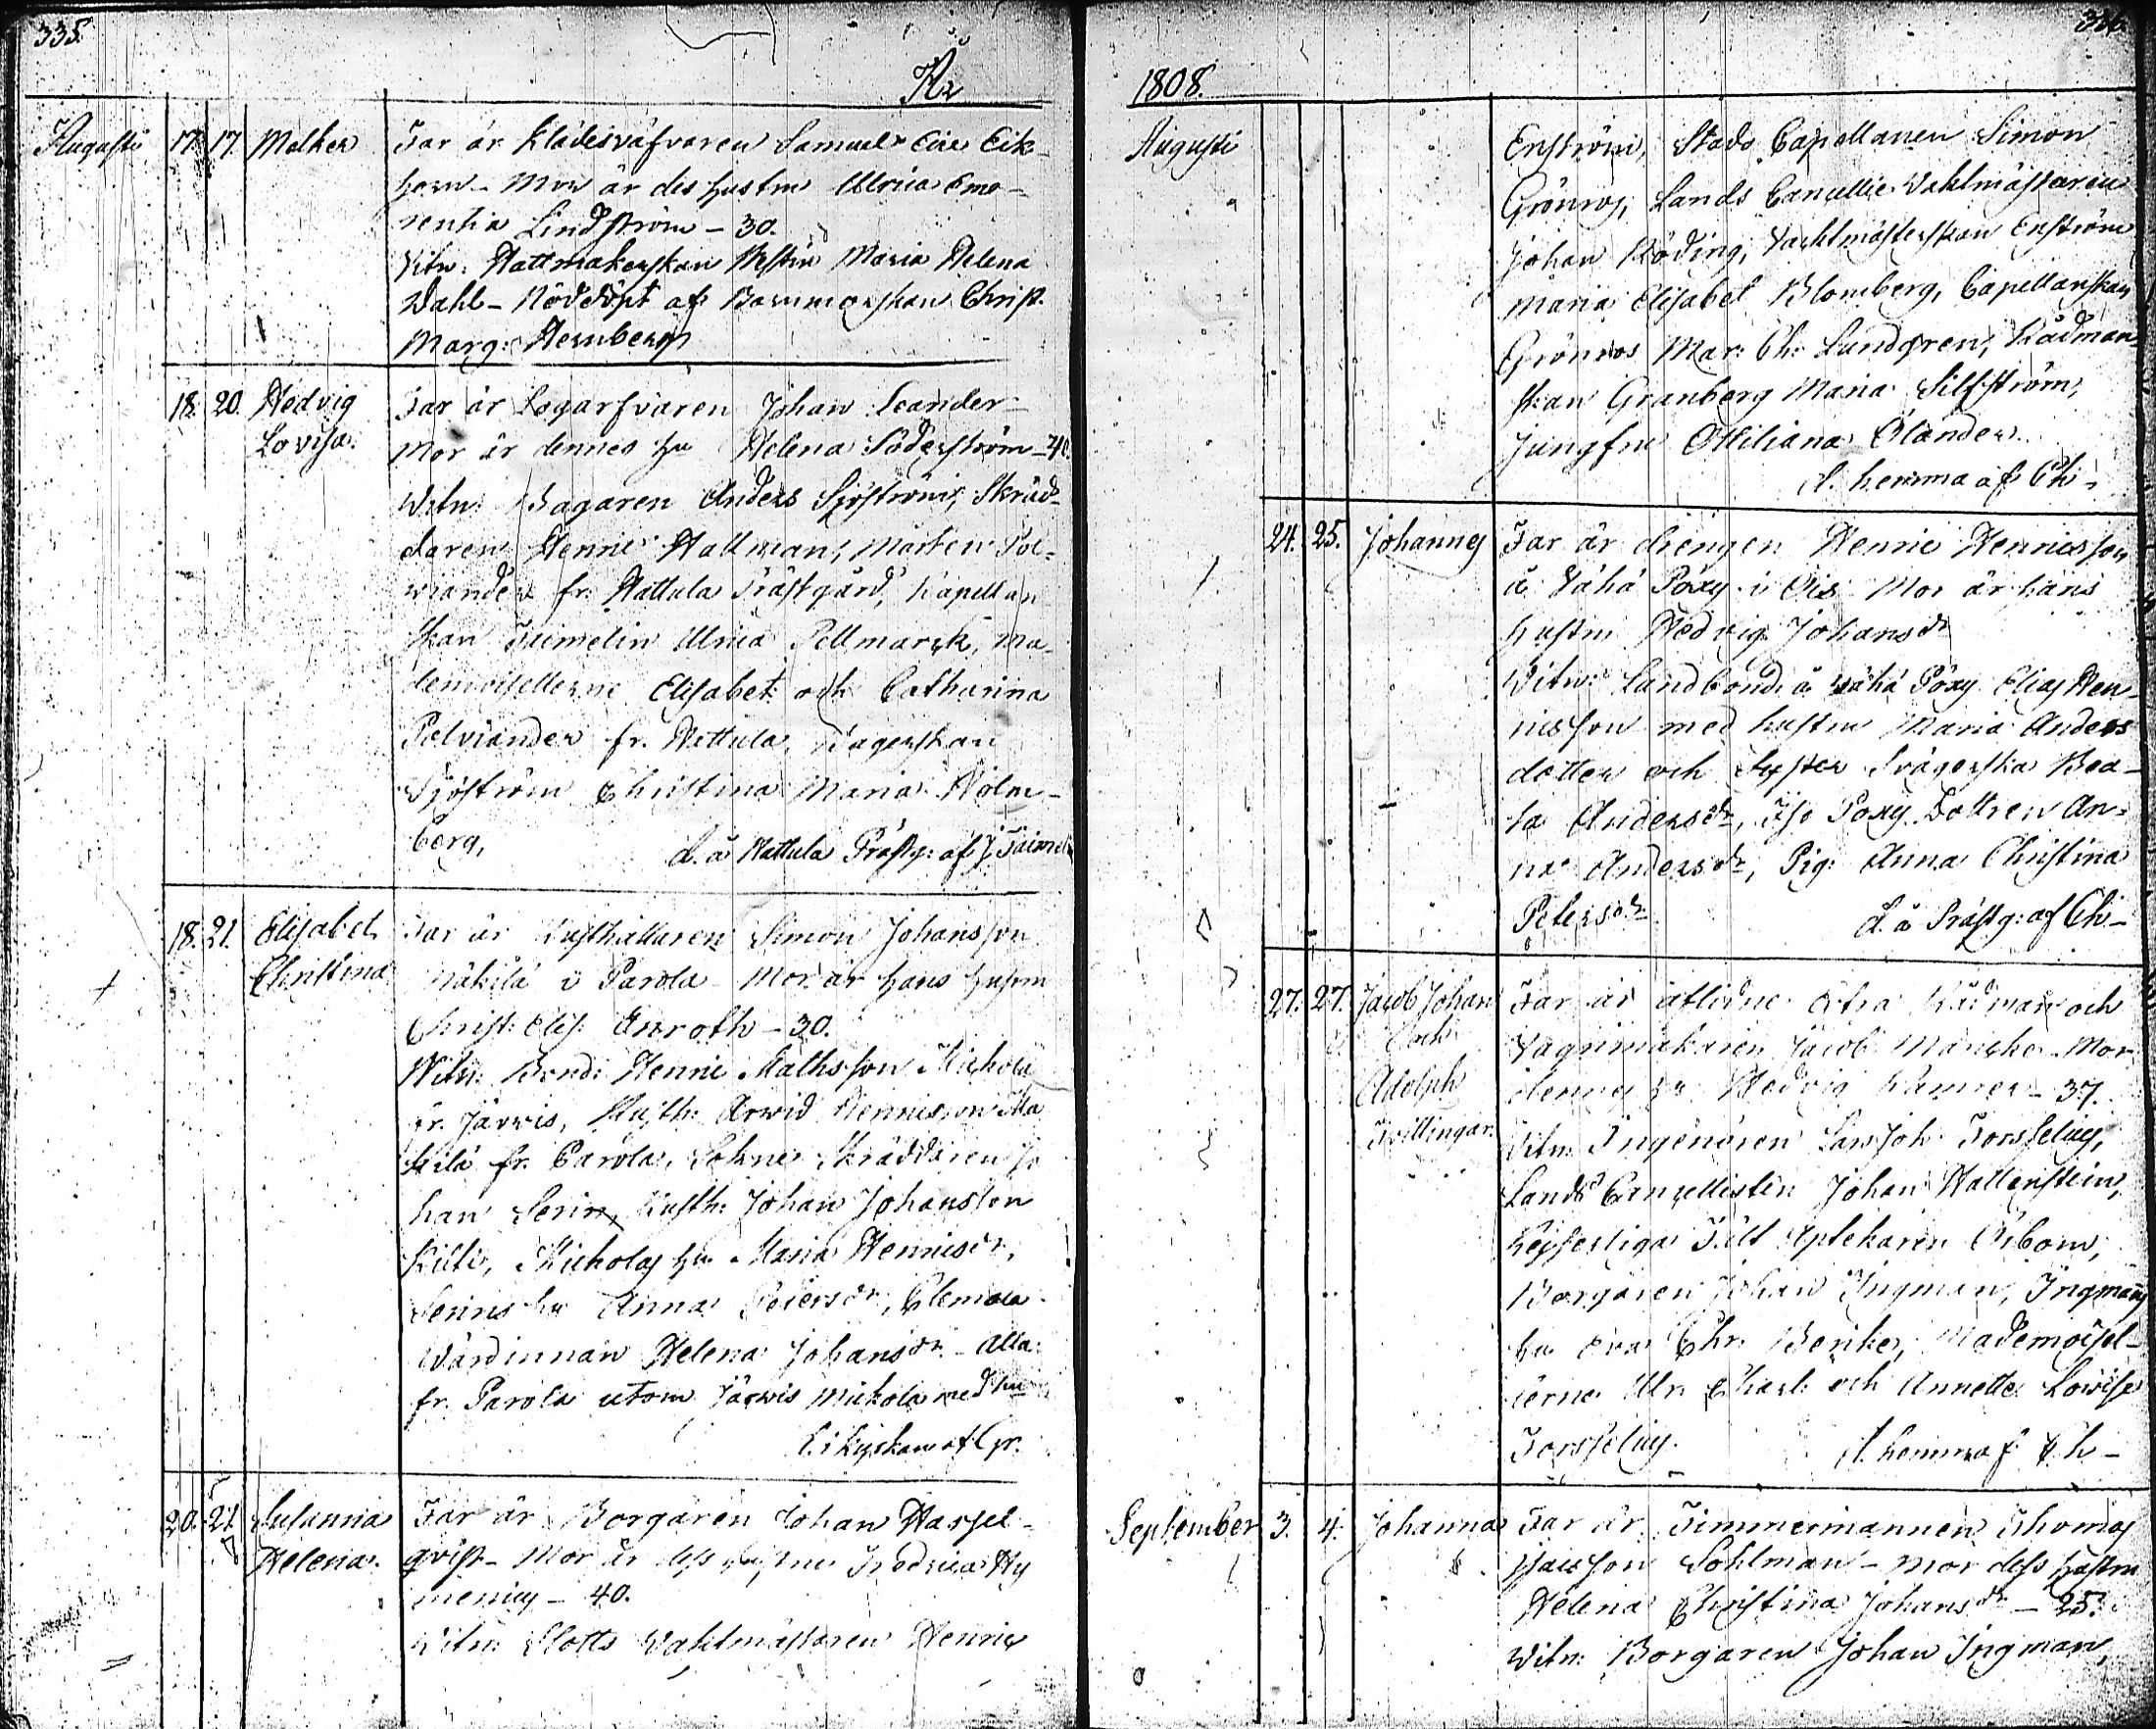 335.
År
Augusti 17. 17. Melker Far är Klädesväfvaren Samuel Eric Eik-
horn - Mor är des hustru Ulrica Eme-
rentia Lindström - 30.
Vitn: Hattmakerskan Maria Helena
Dahl - Nöddöpt af Barnmorskan Christ.
Marg: Hernberg
18. 20. Hedvig Far är Logarfvaren Johan Leander -
Lovisa. Mor är dennes hu Helena Söderström - 40.
Witn: Bagaren Anders Sjöström, Skräd-
daren Henric Hallman, Mårten Pol-
viander fr. Hattula Prästgård, Kapellan
skan Ulrica Pellmarck, Ma-
demoisellerne Elisabet och Catharina
Polviander fr. Hattula, Bagerskan
Sjöström Christina Maria Holm-
berg, d. å Hattula Prästg: af J.
18. 21. Elisabet Far är Rusthållaren Simon Johansson
Christina Mäkilä i Parola - Mor är hans hustru
Christ: Elis: Enroth - 30.
Witn: Bond: Henric Mathsson Mickola
fr. Järvis, Rusth: Arwid Henricsson Mä
kilä fr. Parola, Sokne Skräddaren Jo
han Serin, Rusth: Johan Johansson
Mickolas hu Maria Henricsdr,
Serins hu Anna Petersdr,
Wärdinnan Helena Johansdr - alla
fr. Parola utom Järvis Mickola med hu
d. i Kyrkan af Gr.
20. 21. Susanna Far är Borgaren Johan Hassel-
Helena. qvist - Mor är dess hustru Fredrica Hy
menius - 40.
Witn: Slotts Vaktmästaren Henric
336.
1808.
Augusti Enström, Stads Capellanen Simon
Grönros, Lands Cancellie Vaktmästaren
Johan Röding, Vacktmästerskan Enström
Maria Elisabet Blomberg, Capellanskan
Grönros Mar: Ch: Lundgren, Rådman
skan Granberg Maria Silfström,
Jungfru Ottiliana Ölander.
d. hemma af Ch -
24. 25. Johannes Far är drengen Henric Henricsson
å Vähä Pöxy i Ois. Mor är hans
hustru Hedvig Johansdr
Witn: Landbond: å Vähä Pöxy Elias Hen-
ricsson med hustru Maria Anders
dotter och Syster Svägerska Bea-
ta Andersdr, Iso Poxy Dottren An-
na Andersdr, Pig: Anna Christina
Petersdr d. å Prästg: af Ch -
27. 27. Jacob Johan Far är aflidne extra Rådman och
och Vagnmakaren Jacob Manske - Mor
Adolph dennes hu Hedvig - 37.
Tvillingar. Vitn: Ingenören Lars Joh: Forsselius,
Lands Cancellisten Johan Hallenstein,
Kejserliga Fält Aptekaren Örbom,
Borgaren Johan Ingman, Ingmans
hu Eva Chr. Benike, Mademoisel-
lerne Ulr: Charl: och Annette Lovise
Forsselius. d. hemma af Ch -
September 3. 4. Johanna Far är Timmermannen Thomas
Isacsson Sohlman - Mor dess hustru
Helena Christina Johansdr - 25.
Witn: Borgaren Johan Ingman,